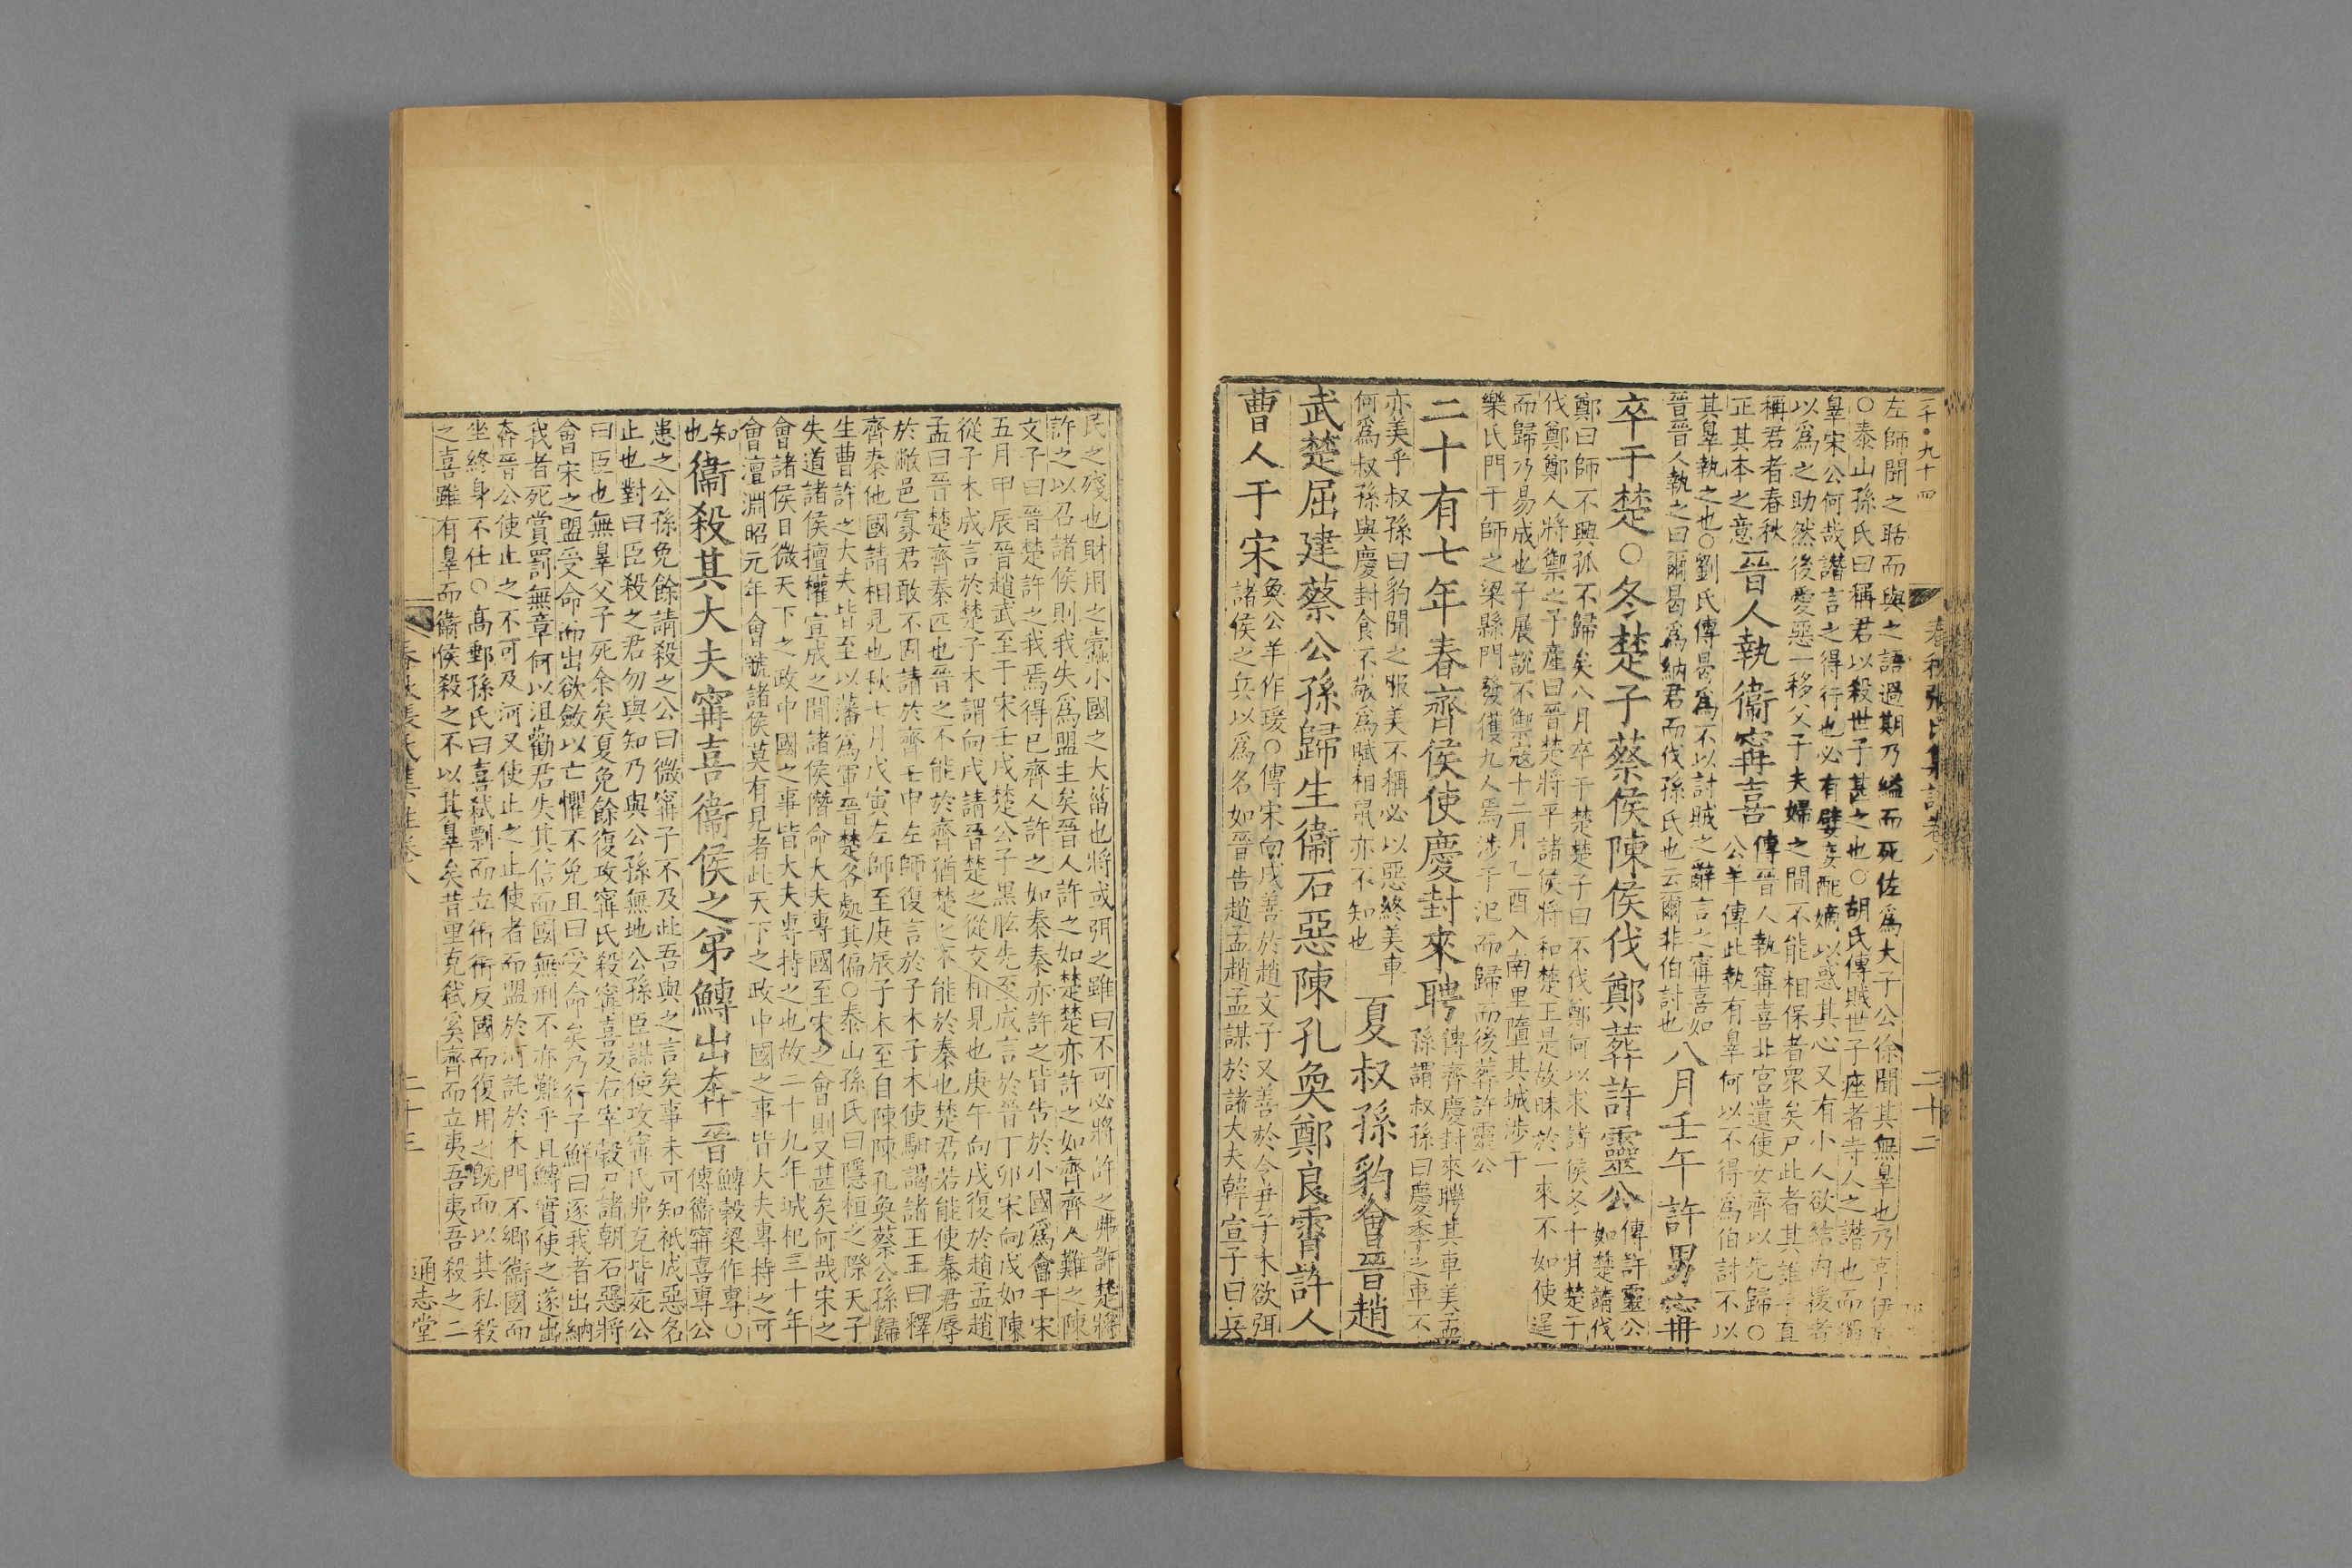 二千○九十四
春秋張氏集註卷八
二十二
左師聞之聒而與之語過期乃縊而死佐爲大子公徐聞其無辠也乃亨伊戾
○泰山孫氏曰稱君以殺世子甚之也○胡氏傳賊世子痤者寺人之譖也而獨
辠宋公何哉譖言之得行也必有嬖妾配嫡以惑其心又有小人欲結內援者
以爲之助然後愛惡一移父子夫婦之間不能相保者衆矣尸此者其誰乎直
稱君者春秋
正其本之意
晉人執衞甯喜
傳晉人執甯喜北宮遺使女齊以先歸○
公羊傳此執有辠何以不得爲伯討不以
其辠執之也○劉氏傳曷爲不以討賊之辭言之甯喜如
晉晉人執之曰爾曷爲納君而伐孫氏也云爾非伯討也
八月壬午許男甯
卒于楚○冬楚子蔡侯陳侯伐鄭葬許靈公
傳許靈公
如楚請伐
鄭曰師不興孤不歸矣八月卒于楚楚子曰不伐鄭何以求諸侯冬十月楚子
伐鄭鄭人將禦之子產曰晉楚將平諸侯將和楚王是故昧於一來不如使逞
而歸乃易成也子展說不禦寇十二月乙酉入南里墮其城涉于
樂氏門于師之梁縣門發獲九人焉涉于氾而歸而後葬許靈公
二十有七年春齊侯使慶封來聘
傳齊慶封來聘其車美孟
孫謂叔孫曰慶季之車不
亦美乎叔孫曰豹聞之服美不稱必以惡終美車
何爲叔孫與慶封食不敬爲賦相鼠亦不知也
夏叔孫豹會晉趙
武楚屈建蔡公孫歸生衞石惡陳孔奐鄭良霄許人
曹人于宋
奐公羊作瑗○傳宋向戌善於趙文子又善於令尹子木欲弭
諸侯之兵以爲名如晉告趙孟趙孟謀於諸大夫韓宣子曰兵
民之殘也財用之蠹小國之大菑也將或弭之雖曰不可必將許之弗許楚將
許之以召諸侯則我失爲盟主矣晉人許之如楚楚亦許之如齊齊人難之陳
文子曰晉楚許之我焉得已齊人許之如秦秦亦許之皆告於小國爲會于宋
五月甲辰晉趙武至于宋壬戌楚公子黑肱先至成言於晉丁卯宋向戌如陳
從子木成言於楚子木謂向戌請晉楚之從交相見也庚午向戌復於趙孟趙
孟曰晉楚齊秦匹也晉之不能於齊猶楚之不能於秦也楚君若能使秦君辱
於敝邑寡君敢不固請於齊壬申左師復言於子木子木使馹謁諸王王曰釋
齊秦他國請相見也秋七月戊寅左師至庚辰子木至自陳陳孔奐蔡公孫歸
生曹許之大夫皆至以藩爲軍晉楚各處其偏○泰山孫氏曰隱桓之際天子
失道諸侯擅權宣成之間諸侯僭命大夫專國至宋之會則又甚矣何哉宋之
會諸侯日微天下之政中國之事皆大夫專持之也故二十九年城杞三十年
會澶淵昭元年會虢諸侯莫有見者此天下之政中國之事皆大夫專持之可
知
也
衞殺其大夫甯喜衞侯之弟鱄出奔晉
鱄穀梁作專○
傳衞甯喜專公
患之公孫免餘請殺之公曰微甯子不及此吾與之言矣事未可知祗成惡名
止也對曰臣殺之君勿與知乃與公孫無地公孫臣謀使攻甯氏弗克皆死公
曰臣也無辠父子死余矣夏免餘復攻甯氏殺甯喜及右宰穀尸諸朝石惡將
會宋之盟受命而出欲斂以亡懼不免且曰受命矣乃行子鮮曰逐我者出納
我者死賞罰無章何以沮勸君失其信而國無刑不亦難乎且鱄實使之遂出
奔晉公使止之不可及河又使止之止使者而盟於河託於木門不鄉衞國而
坐終身不仕○高郵孫氏曰喜弒剽而立衎衎反國而復用之旣而以其私殺
之喜雖有辠而衞侯殺之不以其辠矣昔里克弒奚齊而立夷吾夷吾殺之二
春秋張氏集註卷八
二十三
通志堂